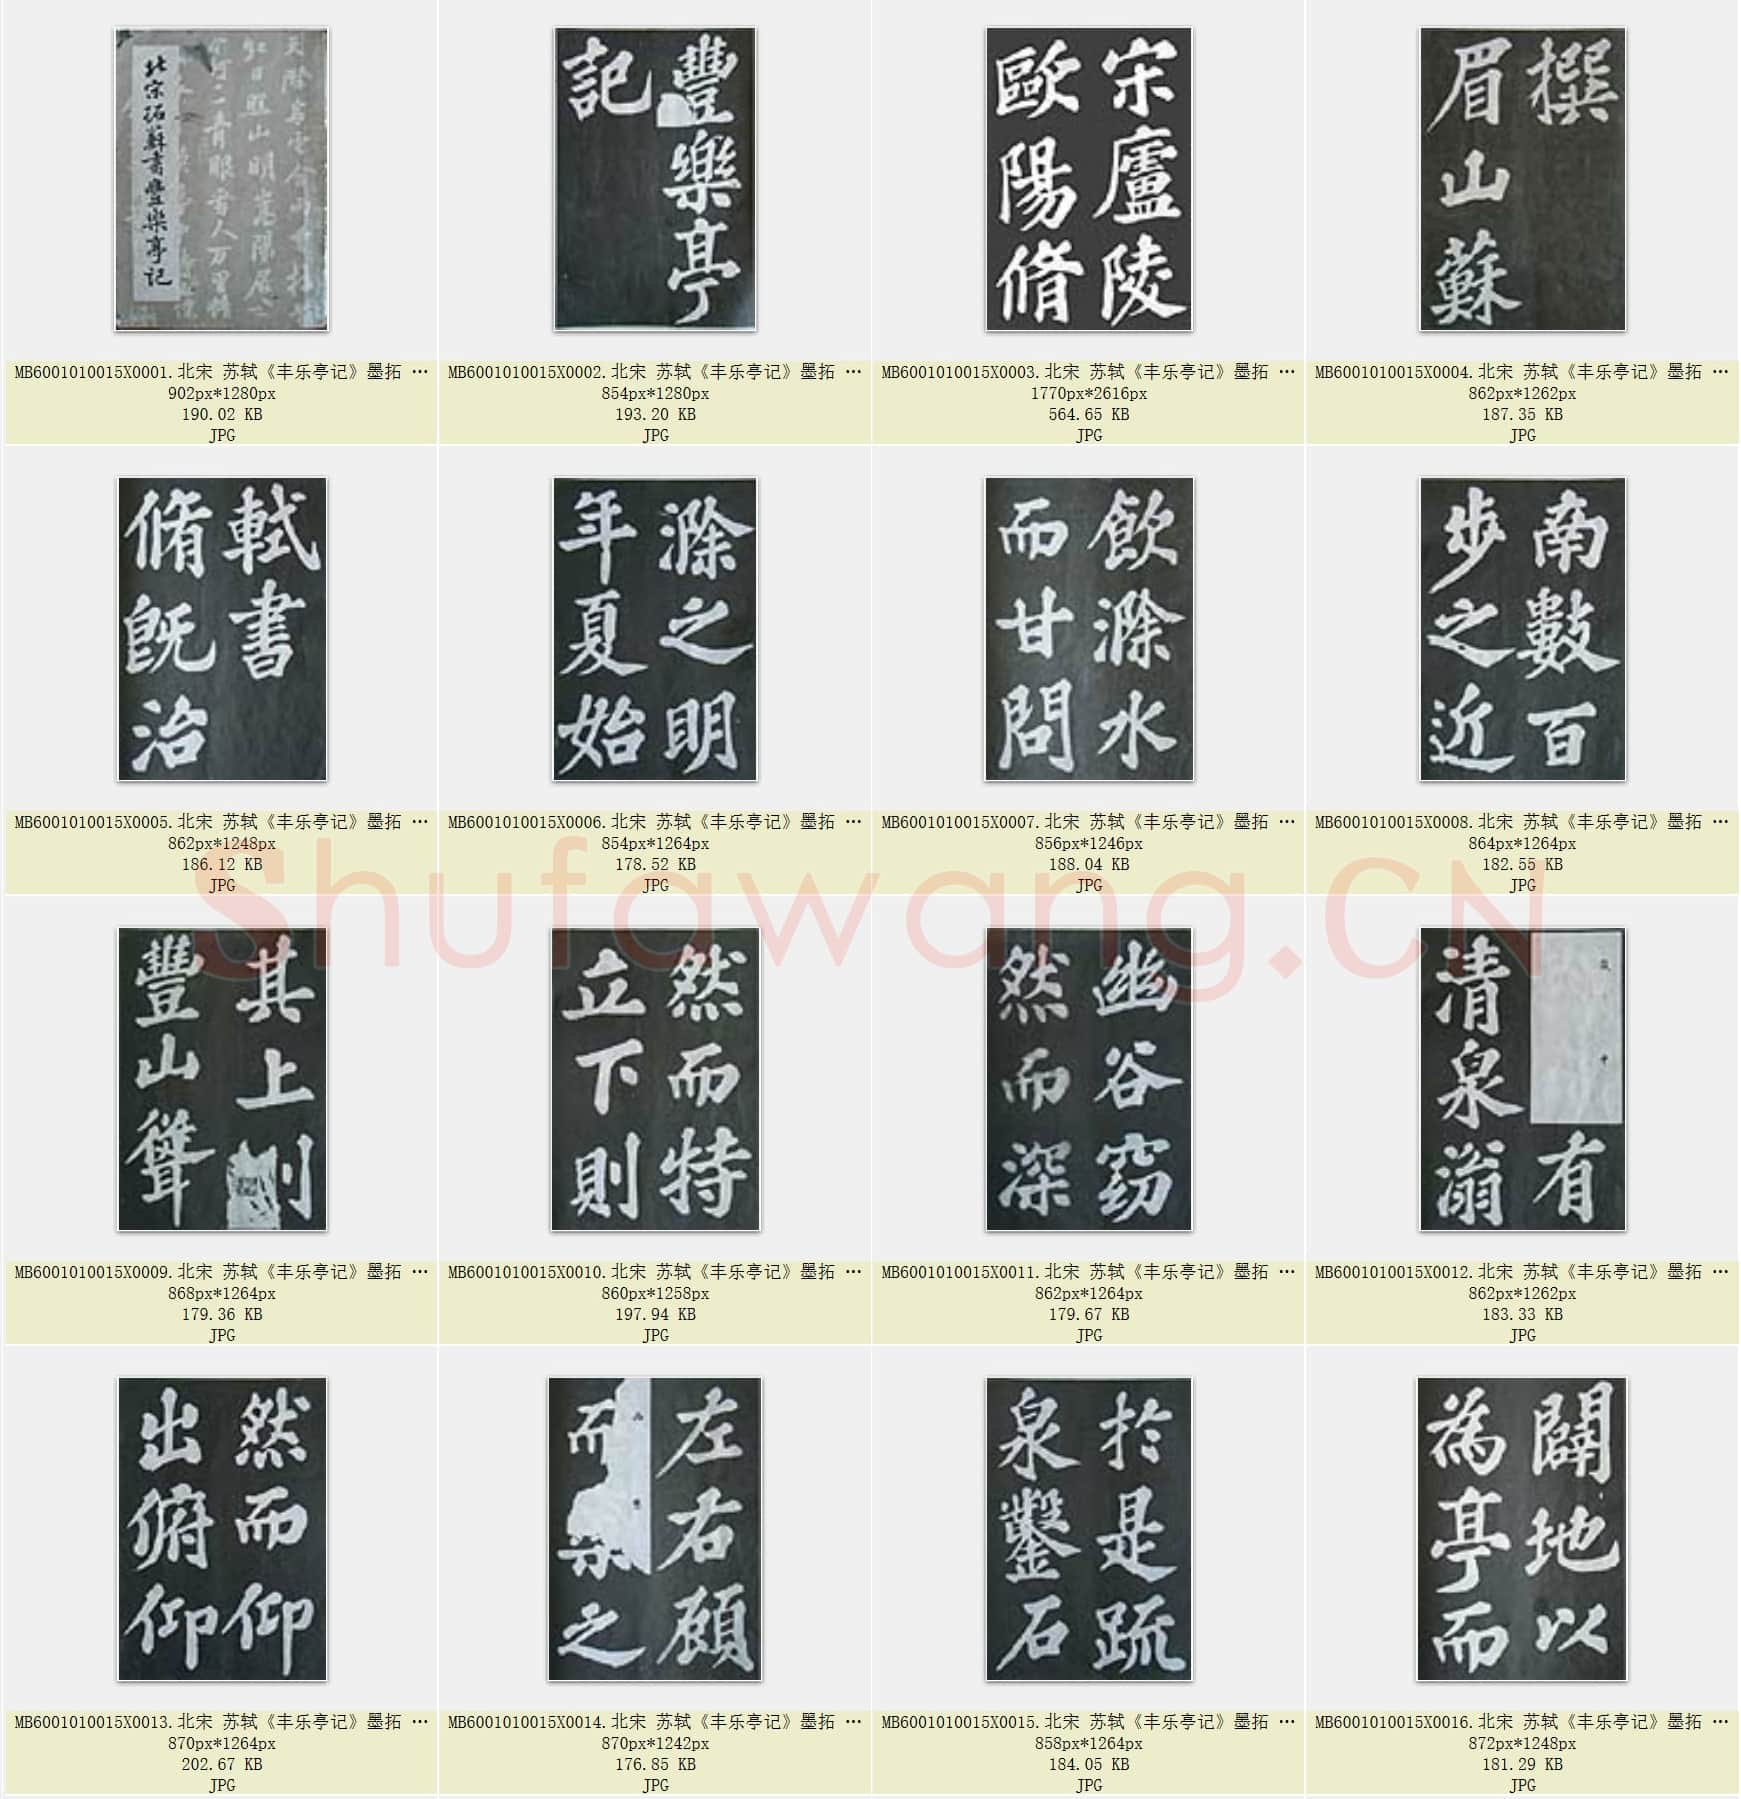 北宋拓蘇書豐樂亭记
MB6001010015X0001.北宋 苏轼《丰乐亭记》墨拓 …
902px*1280px
190.02 KB
JPG
豐樂亭
記
MB6001010015X0002.北宋 苏轼《丰乐亭记》墨拓 …
854px*1280px
193.20 KB
JPG
宋廬陵
歐陽脩
MB6001010015X0003.北宋 苏轼《丰乐亭记》墨拓 …
1770px*2616px
564.65 KB
JPG
撰
眉山蘇
MB6001010015X0004.北宋 苏轼《丰乐亭记》墨拓 …
862px*1262px
187.35 KB
JPG
軾書
脩既治
MB6001010015X0005.北宋 苏轼《丰乐亭记》墨拓 …
862px*1248px
186.12 KB
JPG
滁之明
年夏始
MB6001010015X0006.北宋 苏轼《丰乐亭记》墨拓 …
854px*1264px
178.52 KB
JPG
飲滁水
而甘問
MB6001010015X0007.北宋 苏轼《丰乐亭记》墨拓 …
856px*1246px
188.04 KB
JPG
南數百
步之近
MB6001010015X0008.北宋 苏轼《丰乐亭记》墨拓 …
864px*1264px
182.55 KB
JPG
Shufawang.CN
其上
豐山聳
MB6001010015X0009.北宋 苏轼《丰乐亭记》墨拓 …
868px*1264px
179.36 KB
JPG
然而特
立下則
MB6001010015X0010.北宋 苏轼《丰乐亭记》墨拓 …
860px*1258px
197.94 KB
JPG
幽谷窈
然而深
MB6001010015X0011.北宋 苏轼《丰乐亭记》墨拓 …
862px*1264px
179.67 KB
JPG
有
清泉滃
MB6001010015X0012.北宋 苏轼《丰乐亭记》墨拓 …
862px*1262px
183.33 KB
JPG
然而仰
出俯仰
MB6001010015X0013.北宋 苏轼《丰乐亭记》墨拓 …
870px*1264px
202.67 KB
JPG
左右顧
而樂之
MB6001010015X0014.北宋 苏轼《丰乐亭记》墨拓 …
870px*1242px
176.85 KB
JPG
於是疏
泉鑿石
MB6001010015X0015.北宋 苏轼《丰乐亭记》墨拓 …
858px*1264px
184.05 KB
JPG
闢地以
為亭而
MB6001010015X0016.北宋 苏轼《丰乐亭记》墨拓 …
872px*1248px
181.29 KB
JPG